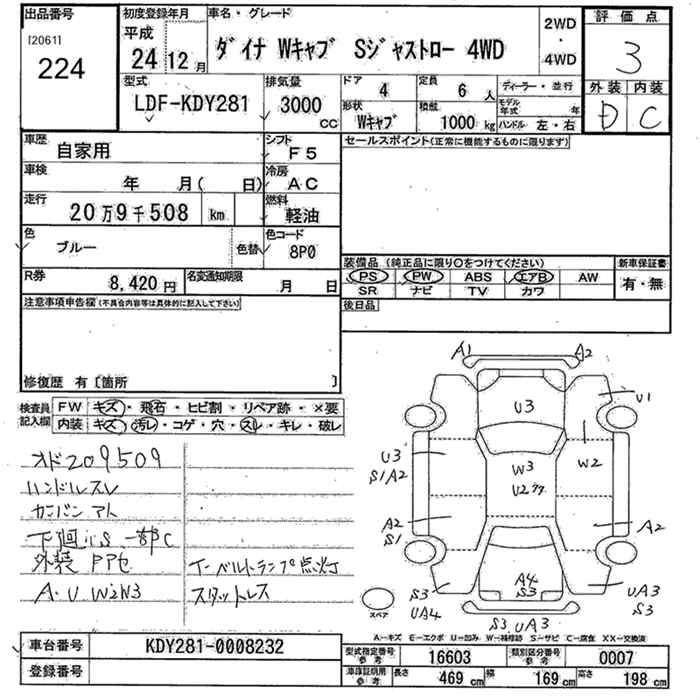 出品番号
[2061]
224
初度登録年月
平成
24 12 月
車名・グレード
ダイナ Wキャブ Sジャストロー 4WD
2WD
・
4WD
評価点
3
外装 内装
D C
型式
LDF-KDY281
排気量
3000
cc
ドア
4
定員
6 人
形状
Wキャブ
積載
1000 kg
ディーラー・並行
モデル年式 年
ハンドル 左・右
車歴
自家用
シフト
F5
セールスポイント(正常に機能するものに限ります)
車検
年 月( 日)
冷房
AC
走行
20万9千508 km
燃料
軽油
色
ブルー
色替
色コード
8P0
R券
8,420 円
名変通知期限
月 日
装備品 (純正品に限り○をつけてください)
新車保証書
PS PW ABS エアB AW
有・無
SR ナビ TV カワ
注意事項申告欄 (不具合内容等は具体的に記入して下さい)
後日品
修復歴 有 [箇所 ]
検査員
記入欄
FW キズ・飛石・ヒビ割・リペア跡・×要
内装 キズ・汚レ・コゲ・穴・スレ・キレ・破レ
オド209509
ハンドルスレ
カンバンアト
下廻りS 一部C
外装 PP色
A.U W2W3
T-ベルトランプ点灯
スタットレス
A1 A2
U3
U1
U3
S1A2
W3
W2
U2
A2
S1
A2
A4
S3
S3
UA4
UA3
S3
S3 UA3
スペア
A―キズ E―エクボ U―凹み W―補修跡 S―サビ C―腐食 XX―交換済
車台番号
KDY281-0008232
登録番号
型式指定番号
参考
16603
類別区分番号
参考
0007
車庫証明用
参考
長さ 469 cm 幅 169 cm 高さ 198 cm